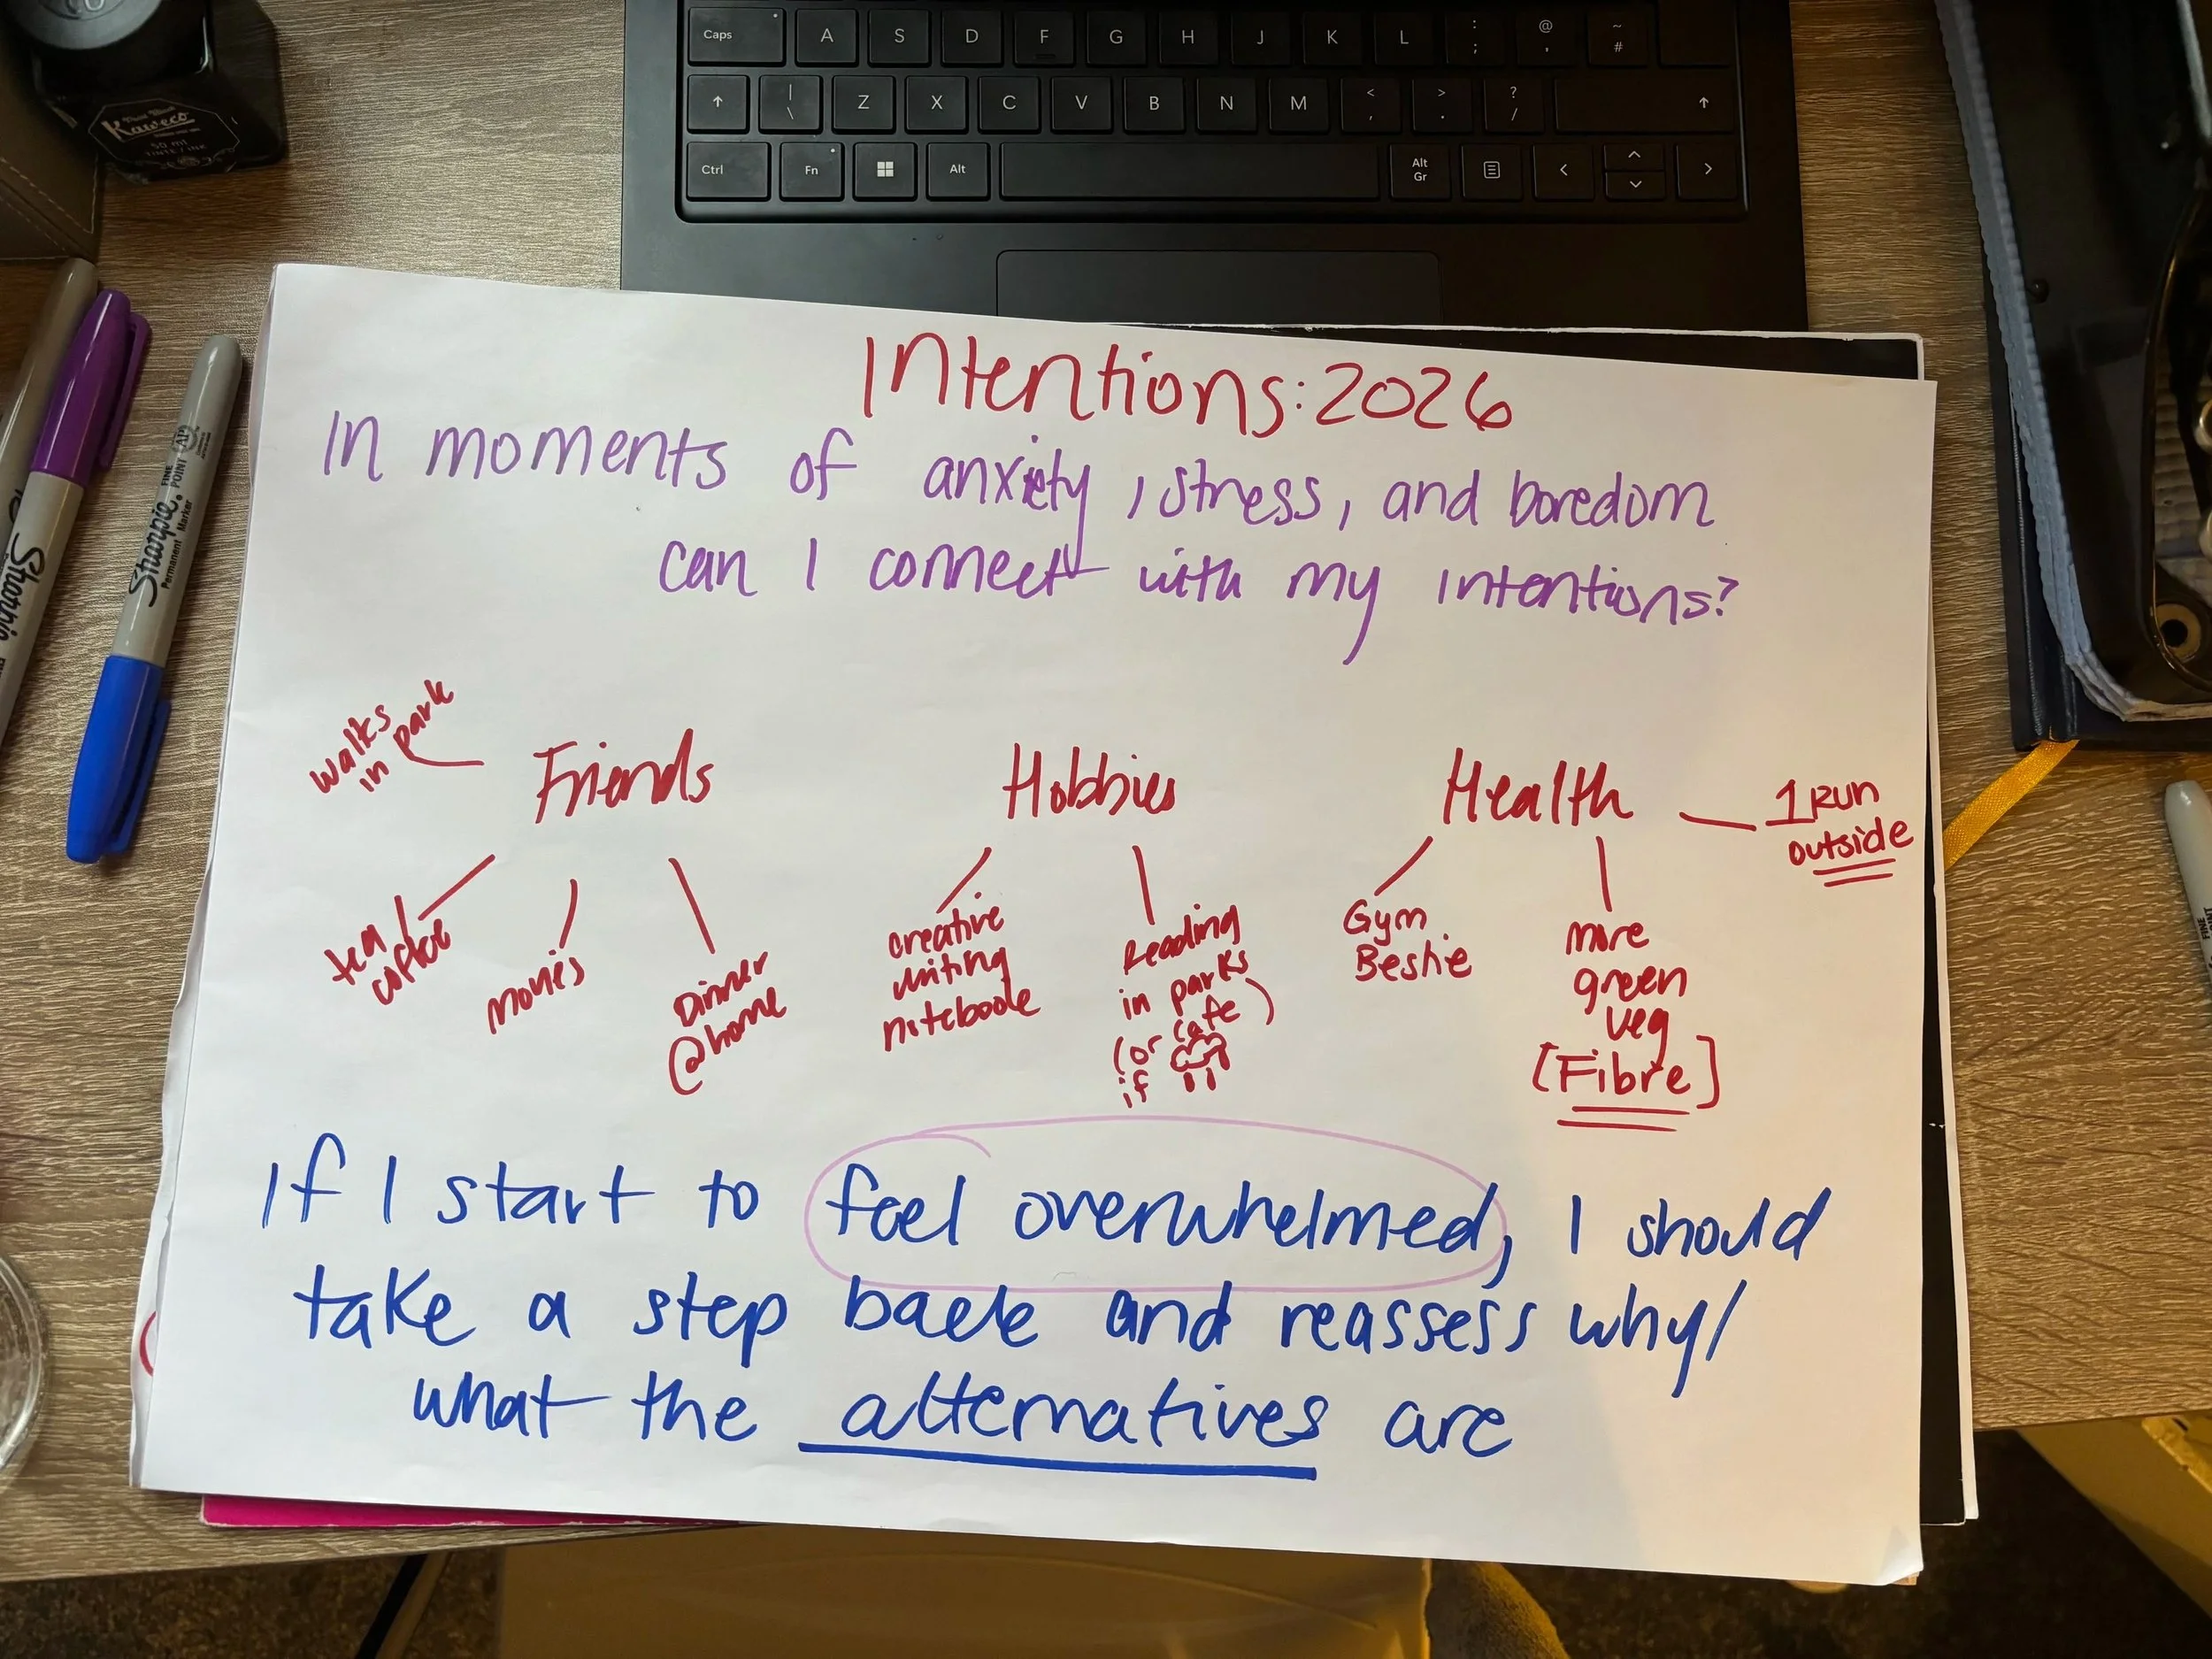 Caps A S D F G H J K L : ; @ ' ~ #
| \ Z X C V B N M < , > . ? /
Ctrl Fn Alt Alt Gr < >
Kaweco
50 ml
TINTE / INK
Sharpie
FINE POINT
AP
Sharpie.
Permanent Marker
FINE
Intentions: 2026
In moments of anxiety, stress, and boredom
can I connect with my intentions?
Friends
walks
in park
tea
coffee
movies
Dinner
@home
Hobbies
creative
writing
notebook
Reading
in parks
(or cafe)
if
Health
Gym
Bestie
more
green
veg
[Fibre]
1 Run
outside
If I start to feel overwhelmed, I should
take a step back and reassess why/
what the alternatives are